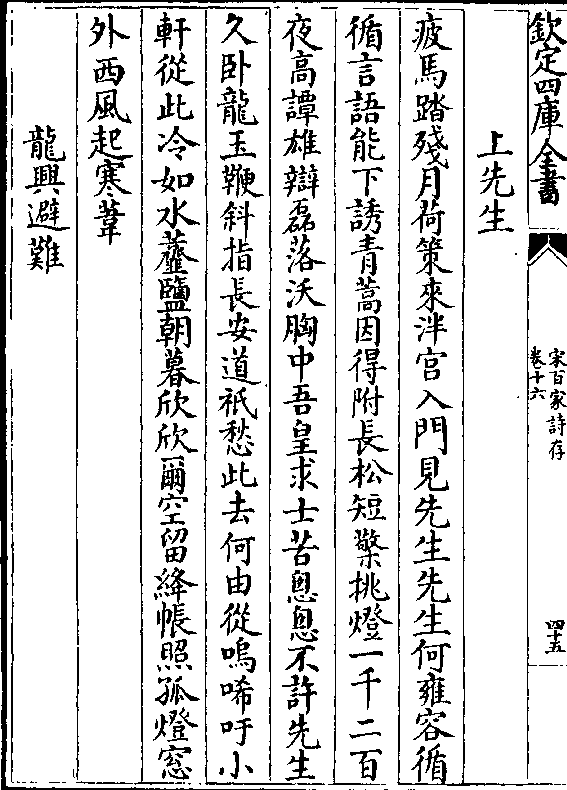 欽定四庫全書
宋百家詩存
卷十六
四十五
上先生
疲馬踏殘月荷策來泮宫入門見先生先生何雍容循
循言語能下誘青蒿因得附長松短檠挑燈一千二百
夜高譚雄辯磊落沃胸中吾皇求士苦悤悤不許先生
久卧龍玉鞭斜指長安道祇愁此去何由從嗚唏吁小
軒從此冷如水虀鹽朝暮欣欣爾空留絳帳照孤燈窓
外西風起寒葦
龍興避難